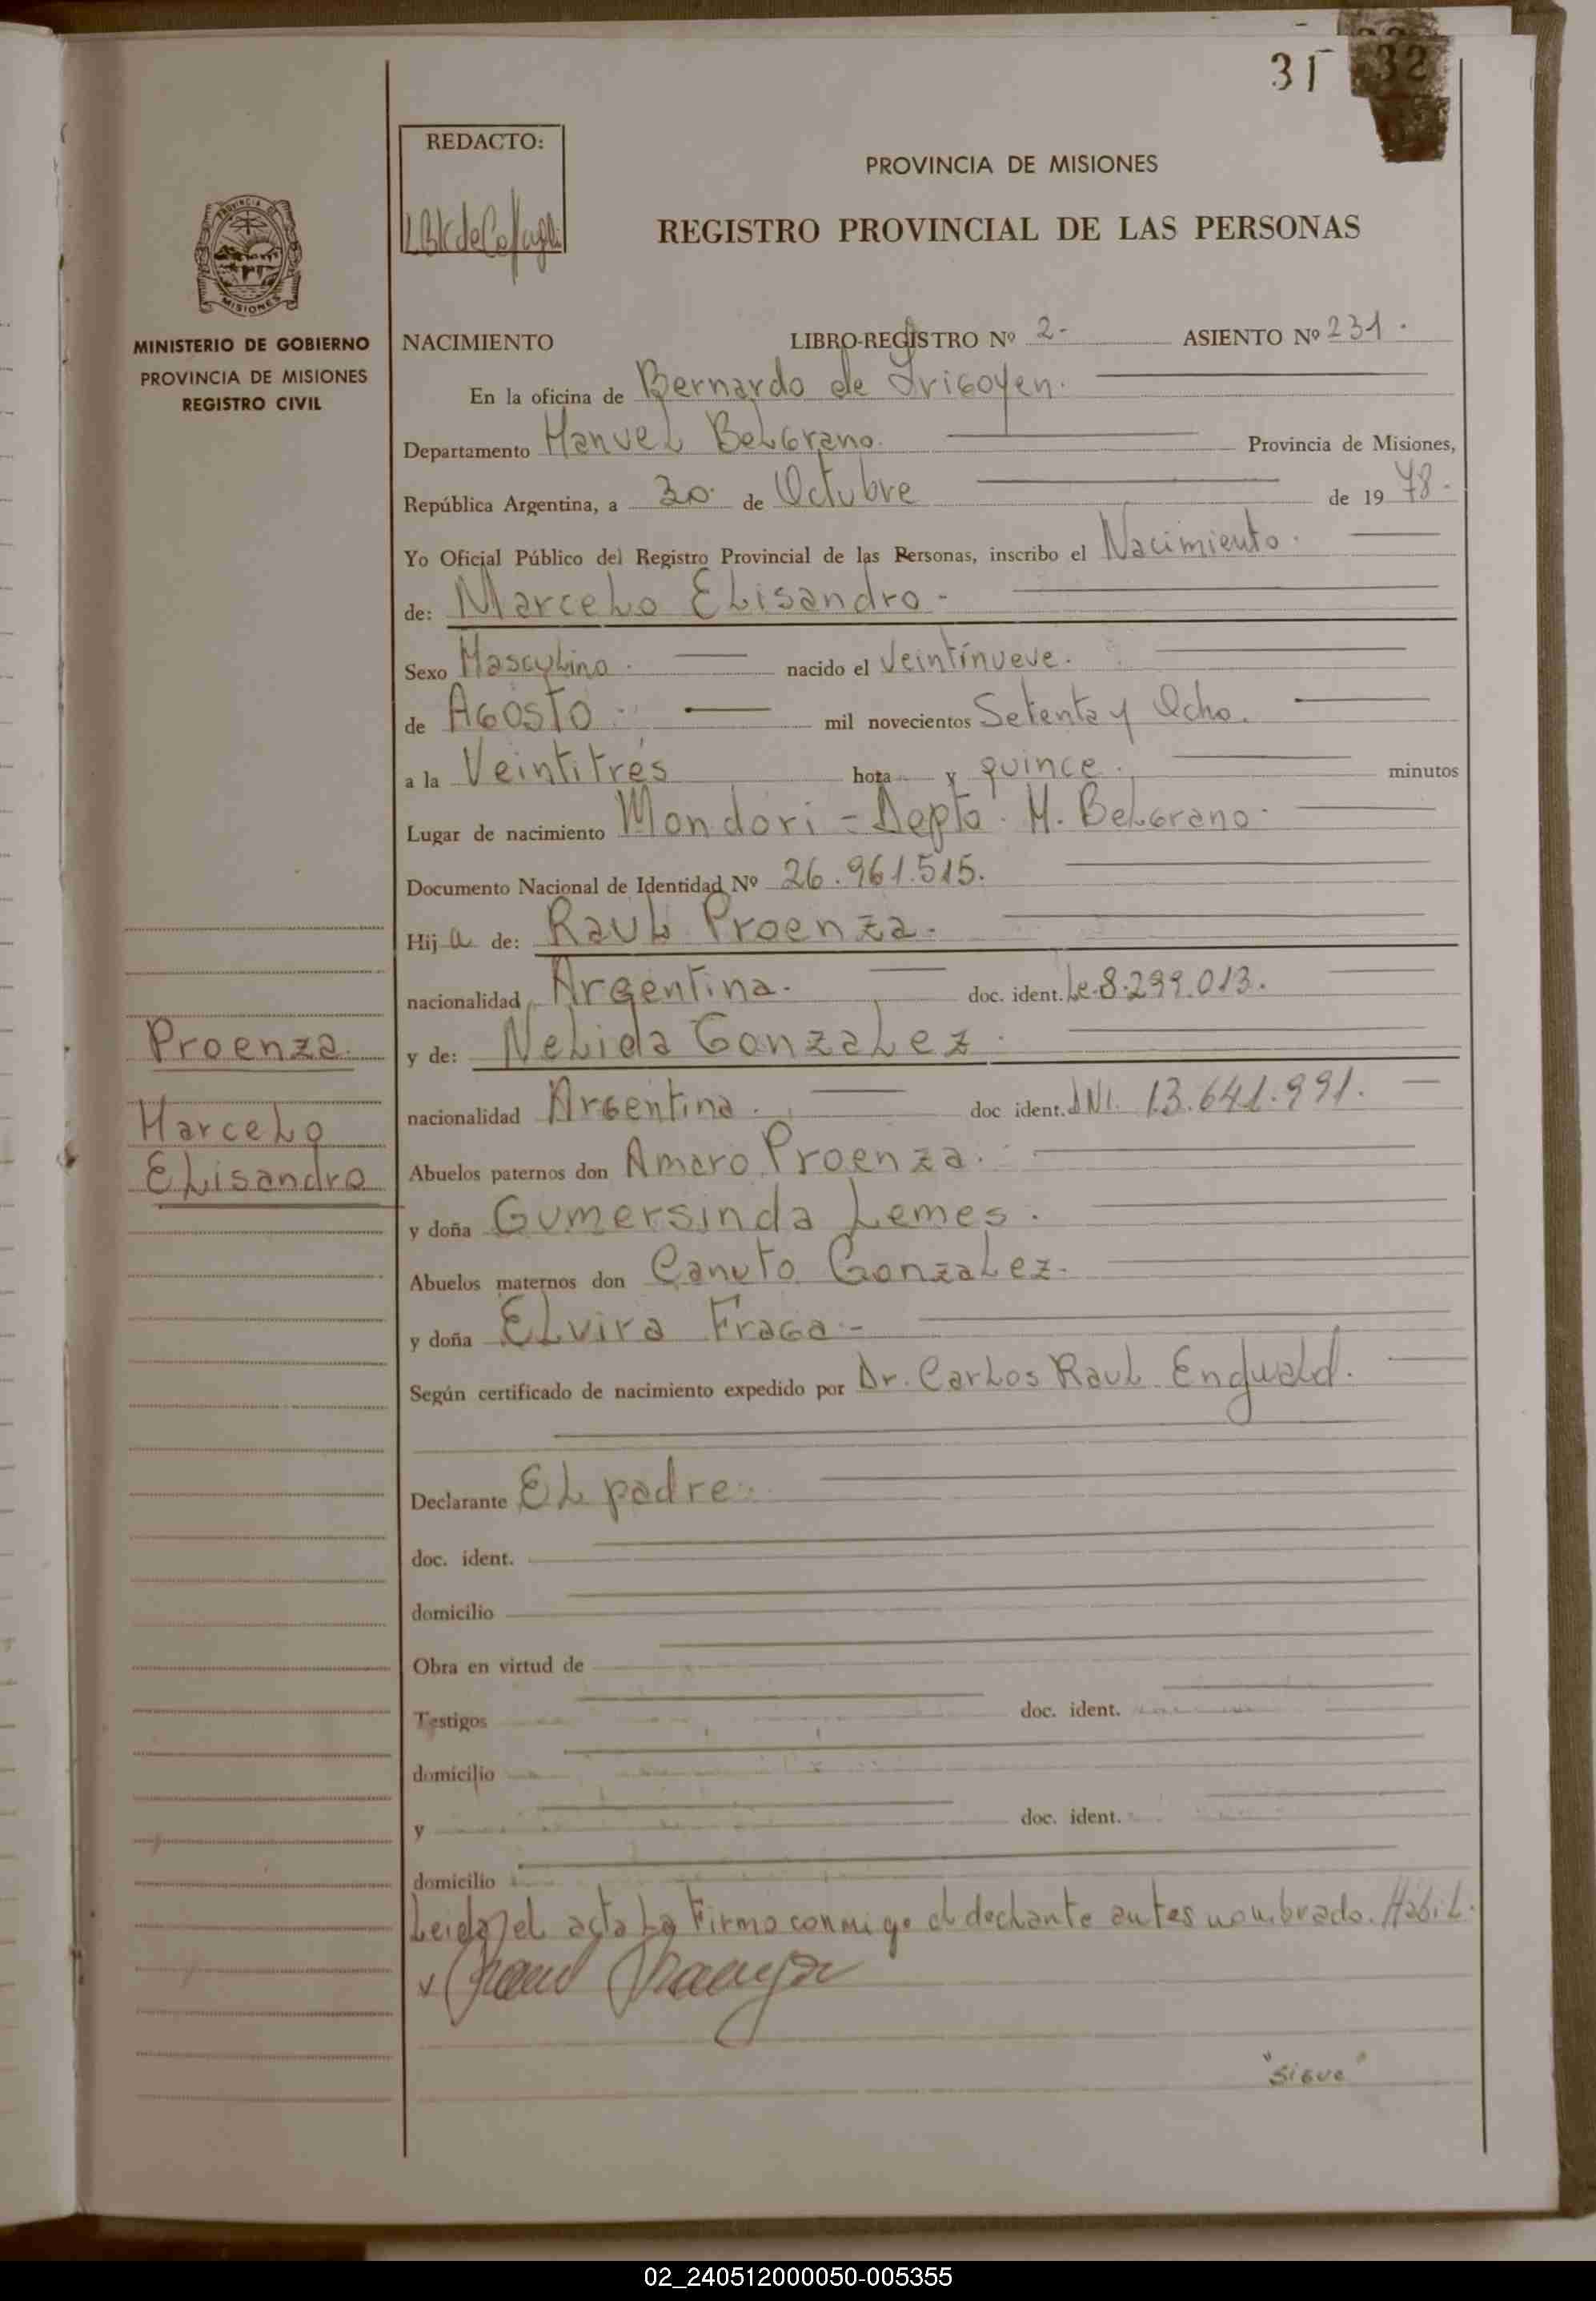 31 32
REDACTO:
PROVINCIA DE MISIONES
REGISTRO PROVINCIAL DE LAS PERSONAS
PROVINCIA DE
MISIONES
MINISTERIO DE GOBIERNO
PROVINCIA DE MISIONES
REGISTRO CIVIL
NACIMIENTO LIBRO-REGISTRO Nº 2- ASIENTO Nº 231.
En la oficina de Bernardo de Irigoyen.
Departamento Manuel Belgrano. Provincia de Misiones,
República Argentina, a 30. de Octubre de 19 78-
Yo Oficial Público del Registro Provincial de las Personas, inscribo el Nacimiento.
de: Marcelo Elisandro-
Sexo Masculino. nacido el Veintinueve.
de Agosto. mil novecientos Setenta y Ocho.
a la Veintitrés hora y quince. minutos
Lugar de nacimiento Mondori - Depto. M. Belgrano.
Documento Nacional de Identidad Nº 26.961.515.
Hij a de: Raul Proenza.
nacionalidad Argentina. doc. ident. Le.8.299.013.
y de: Nelida Gonzalez.
nacionalidad Argentina. doc ident. DNI. 13.641.991.
Abuelos paternos don Amaro Proenza.
y doña Gumersinda Lemes.
Abuelos maternos don Canuto Gonzalez.
y doña Elvira Fraga-
Según certificado de nacimiento expedido por Dr. Carlos Raul Engwald.
Declarante El padre.
doc. ident.
domicilio
Obra en virtud de
Testigos doc. ident.
domicilio
y doc. ident.
domicilio
Leida el acta la Firma conmigo el declante antes nombrado. Habil.
"Sigue"
Proenza.
Marcelo
Elisandro
02_240512000050-005355